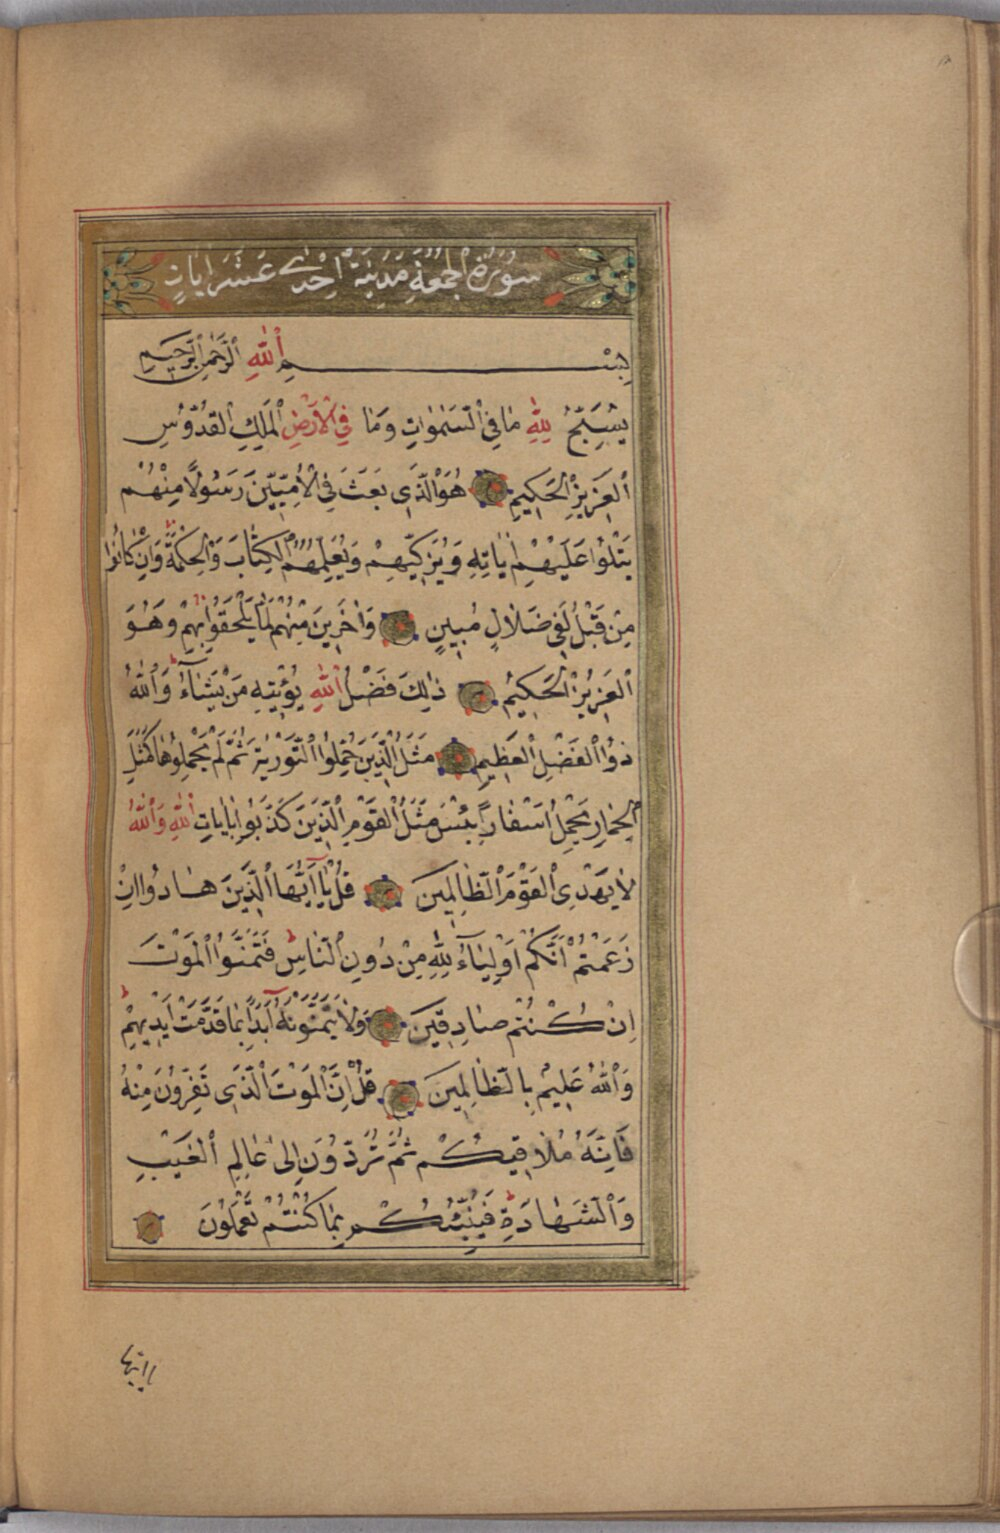 سُورَةُ الْجُمُعَةِ مَدَنِيَّةٌ اِحْدٰى عَشَرَ اٰيَاتٍ
بِسْمِ اللّٰهِ الرَّحْمٰنِ الرَّحِيمِ
يُسَبِّحُ لِلّٰهِ مَا فِي السَّمٰوَاتِ وَمَا فِي الْاَرْضِ الْمَلِكِ الْقُدُّوسِ
الْعَزِيزِ الْحَكِيمِ هُوَ الَّذٖي بَعَثَ فِي الْاُمِّيّٖنَ رَسُولًا مِنْهُمْ
يَتْلُوا عَلَيْهِمْ اٰيَاتِهٖ وَيُزَكّٖيهِمْ وَيُعَلِّمُهُمُ الْكِتَابَ وَالْحِكْمَةَ وَاِنْ كَانُوا
مِنْ قَبْلُ لَفٖي ضَلَالٍ مُبٖينٍ وَاٰخَرٖينَ مِنْهُمْ لَمَّا يَلْحَقُوا بِهِمْ وَهُوَ
الْعَزٖيزُ الْحَكٖيمُ ذٰلِكَ فَضْلُ اللّٰهِ يُؤْتٖيهِ مَنْ يَشَاءُ وَاللّٰهُ
ذُو الْفَضْلِ الْعَظٖيمِ مَثَلُ الَّذٖينَ حُمِّلُوا التَّوْرٰيةَ ثُمَّ لَمْ يَحْمِلُوهَا كَمَثَلِ
الْحِمَارِ يَحْمِلُ اَسْفَارًا بِئْسَ مَثَلُ الْقَوْمِ الَّذٖينَ كَذَّبُوا بِاٰيَاتِ اللّٰهِ وَاللّٰهُ
لَا يَهْدِى الْقَوْمَ الظَّالِمٖينَ قُلْ يَا اَيُّهَا الَّذٖينَ هَادُوا اِنْ
زَعَمْتُمْ اَنَّكُمْ اَوْلِيَاءُ لِلّٰهِ مِنْ دُونِ النَّاسِ فَتَمَنَّوُا الْمَوْتَ
اِنْ كُنْتُمْ صَادِقٖينَ وَلَا يَتَمَنَّوْنَهُ اَبَدًا بِمَا قَدَّمَتْ اَيْدٖيهِمْ
وَاللّٰهُ عَلٖيمٌ بِالظَّالِمٖينَ قُلْ اِنَّ الْمَوْتَ الَّذٖي تَفِرُّونَ مِنْهُ
فَاِنَّهُ مُلَاقٖيكُمْ ثُمَّ تُرَدُّونَ اِلٰى عَالِمِ الْغَيْبِ
وَالشَّهَادَةِ فَيُنَبِّئُكُمْ بِمَا كُنْتُمْ تَعْمَلُونَ
يا ايها